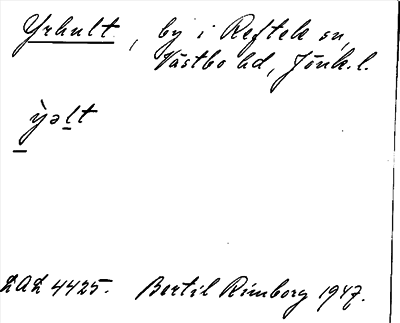 Yxhult, by i Reftele sn,
Västbo hd, Jönk. l.
ỳəlt
LAL 4425. Bertil Rimborg 1947.